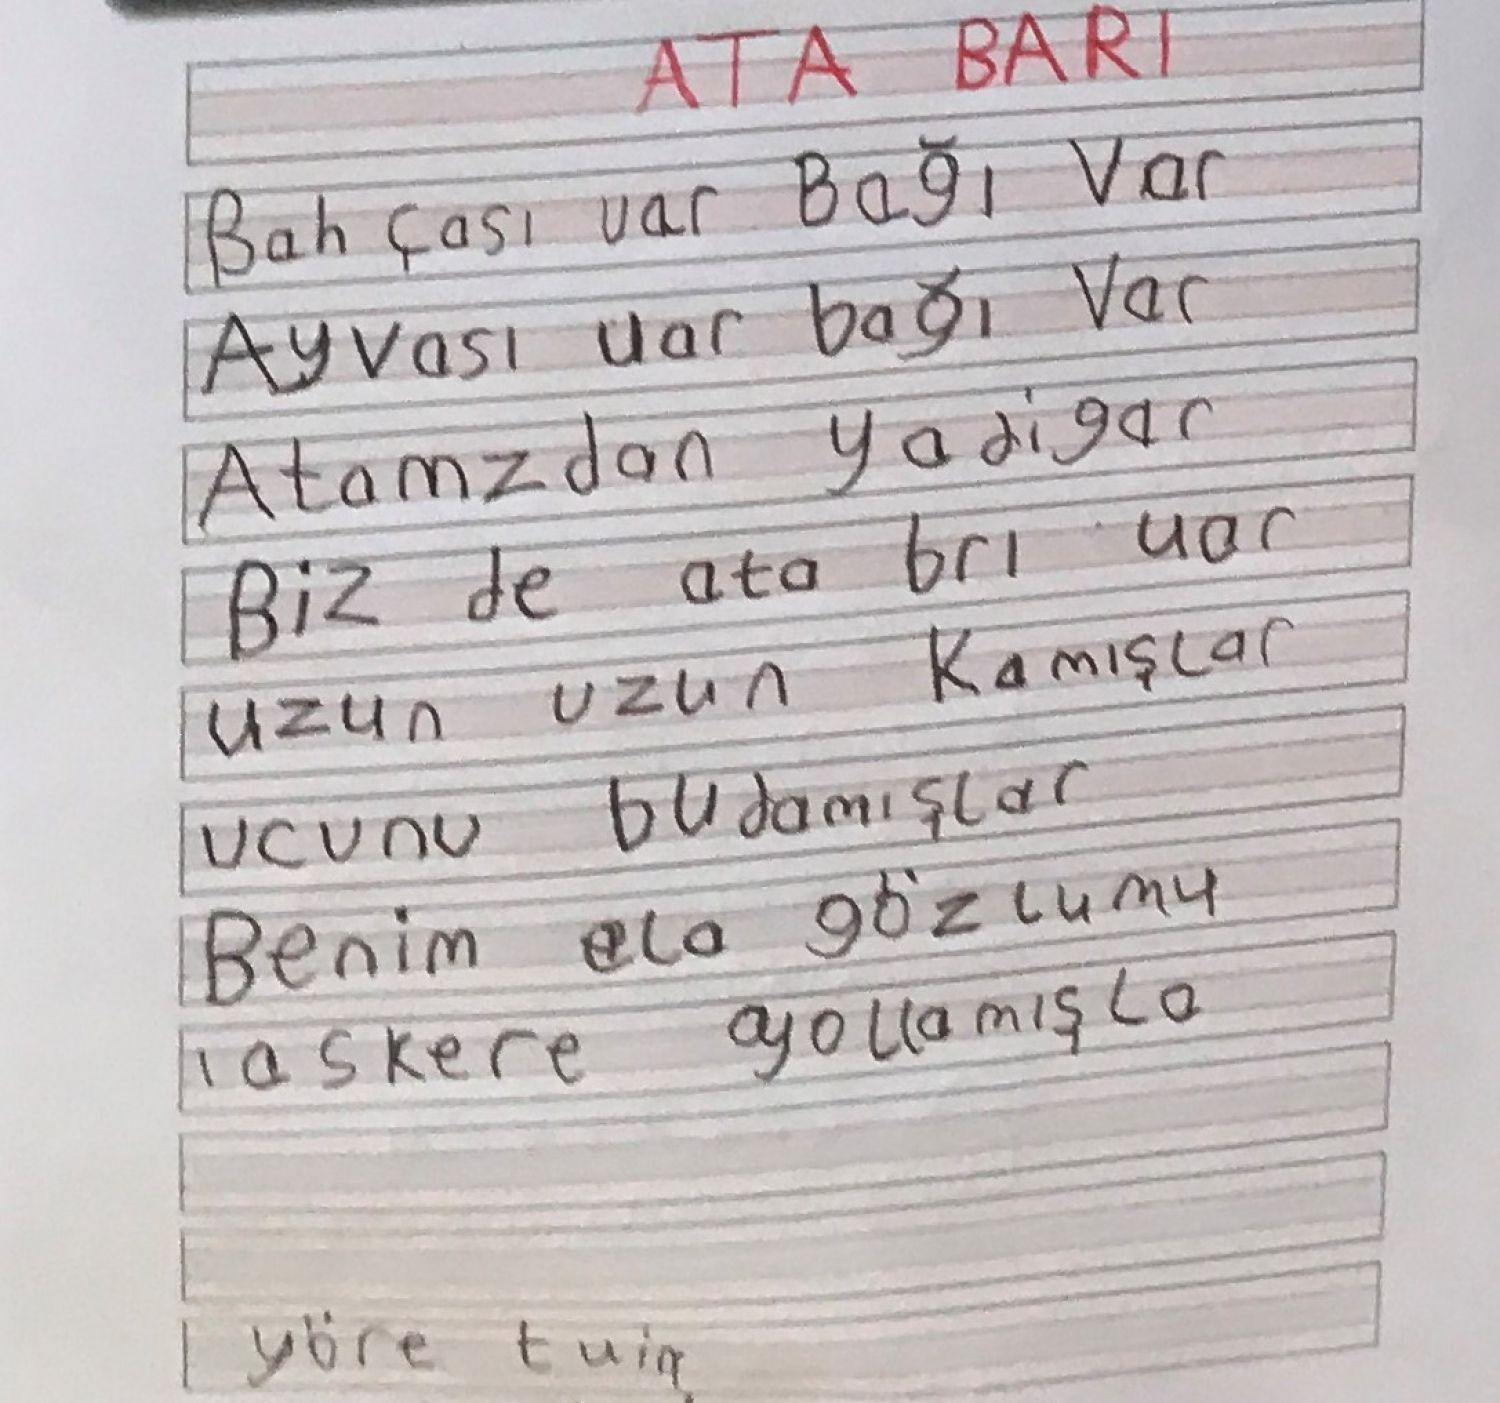 ATA BARI
Bahçası var Bağı Var
Ayvası var bağı Var
Atamzdan yadigar
Biz de ata brı var
uzun uzun Kamışlar
ucunu budamışlar
Benim ela gözlumu
ıaskere ayollamışla
yöre